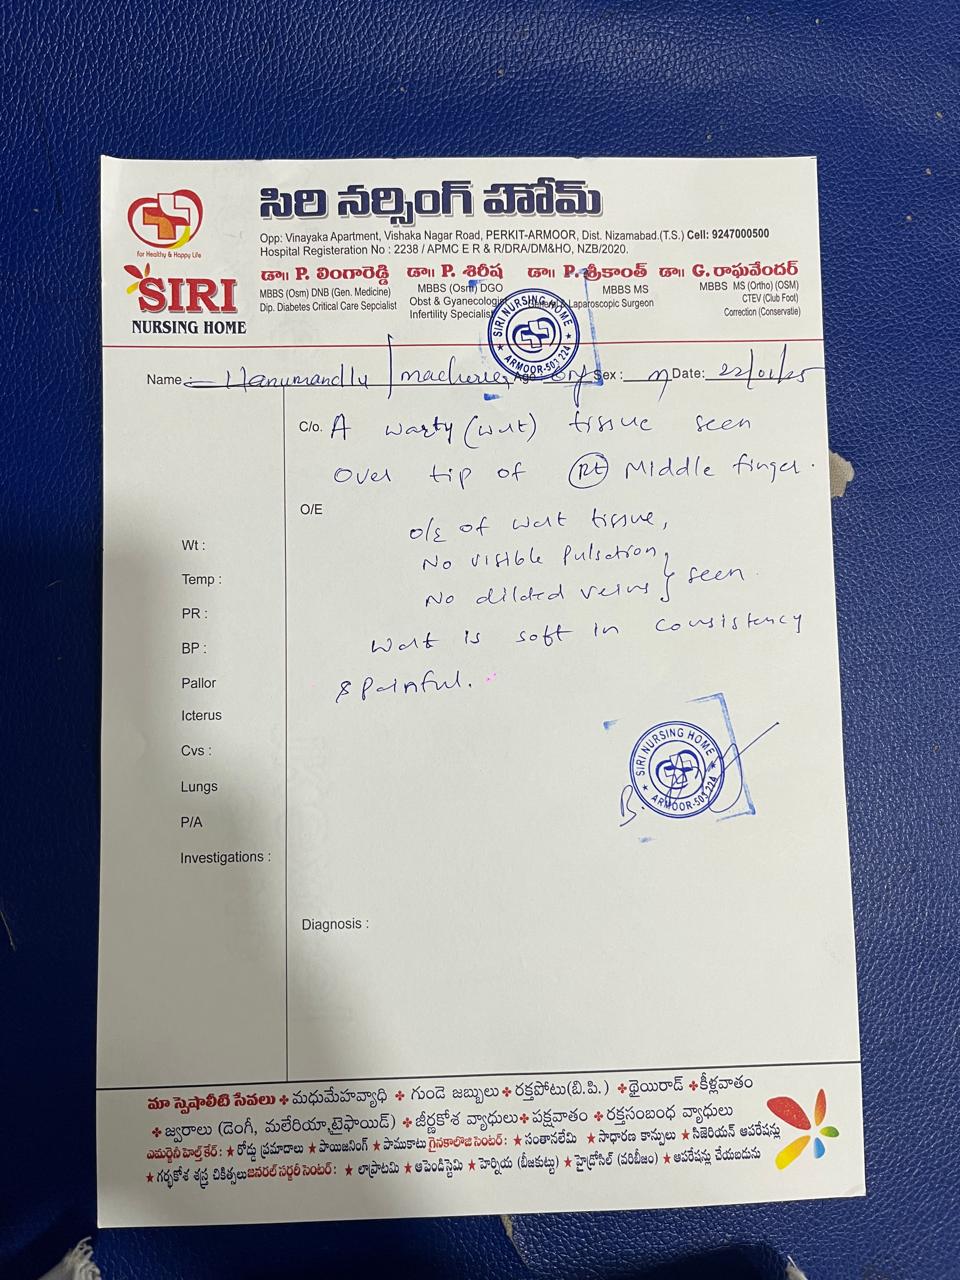 సిరి నర్సింగ్ హోమ్
for Healthy & Happy Life
Opp: Vinayaka Apartment, Vishaka Nagar Road, PERKIT-ARMOOR, Dist. Nizamabad.(T.S.) Cell: 9247000500
Hospital Registeration No : 2238 / APMC E R & R/DRA/DM&HO, NZB/2020.
SIRI
NURSING HOME
డా॥ P. లింగారెడ్డి
MBBS (Osm) DNB (Gen. Medicine)
Dip. Diabetes Critical Care Sepcialist
డా॥ P. శిరీష
MBBS (Osm) DGO
Obst & Gyanecologist
Infertility Specialist
డా॥ P. శ్రీకాంత్
MBBS MS
Laparoscopic Surgeon
డా॥ G. రాఘవేందర్
MBBS MS (Ortho) (OSM)
CTEV (Club Foot)
Correction (Conservatie)
SIRI NURSING HOME
★ ARMOOR-503 224 ★
Name : Hanumandlu Sex : M Date: 22/01/25
C/o. A warty (wart) tissue seen
over tip of (Rt) Middle finger.
O/E
o/E of wart tissue,
No visible Pulsation
No dilded veins } seen.
Wart is soft in consistency
& Painful.
Wt :
Temp :
PR :
BP :
Pallor
Icterus
Cvs :
Lungs
P/A
Investigations :
SIRI NURSING HOME
★ ARMOOR-503 224 ★
Diagnosis :
మా స్పెషాలిటి సేవలు + మధుమేహవ్యాధి + గుండె జబ్బులు + రక్తపోటు(బి.పి.) + థైయిరాడ్ + కీళ్లవాతం
+ జ్వరాలు (డెంగీ, మలేరియా,టైఫాయిడ్) + జీర్ణకోశ వ్యాధులు + పక్షవాతం + రక్తసంబంధ వ్యాధులు
ఎమర్జెన్సి హెల్త్ కేర్: ★ రోడ్డు ప్రమాదాలు ★ పాయిజనింగ్ ★ పాముకాటు గైనకాలాజి సెంటర్: ★ సంతానలేమి ★ సాధారణ కాన్పులు ★ సిజెరియన్ ఆపరేషన్లు
★ గర్భకోశ శస్త్ర చికిత్సలు జనరల్ సర్జరీ సెంటర్: ★ లాప్రొటమి ★ అపెండిస్టెమి ★ హెర్నియ (బీజకుట్టు) ★ హైడ్రోసిల్ (వరిబీజం) ★ ఆపరేషన్లు చేయబడును